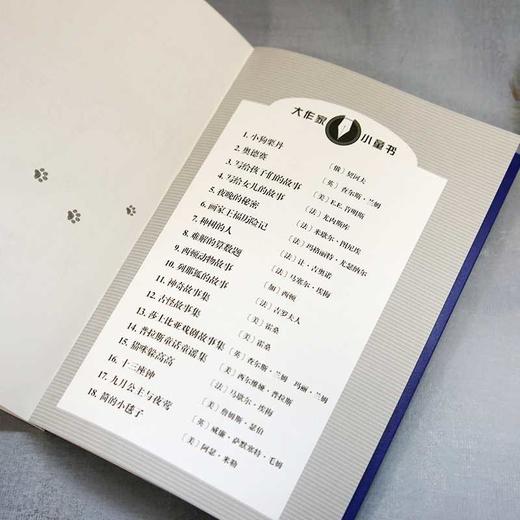 大作家 小童书
1. 小狗栗丹 〔俄〕契诃夫
2. 奥德赛 〔英〕查尔斯·兰姆
3. 写给孩子们的故事 〔美〕E.E.肯明斯
4. 写给女儿的故事 〔法〕尤内斯库
5. 夜晚的秘密 〔法〕米歇尔·图尼埃
6. 画家王福历险记 〔法〕玛格丽特·尤瑟纳尔
7. 种树的人 〔法〕让·吉奥诺
8. 难解的算数题 〔法〕马塞尔·埃梅
9. 西顿动物故事 〔加〕西顿
10. 列那狐的故事 〔法〕吉罗夫人
11. 神奇故事集 〔美〕霍桑
12. 古怪故事集 〔美〕霍桑
13. 莎士比亚戏剧故事集 〔英〕查尔斯·兰姆 玛丽·兰姆
14. 普拉斯童话童谣集 〔美〕西尔维娅·普拉斯
15. 猫咪躲高高 〔法〕马歇尔·埃梅
16. 十三座钟 〔美〕詹姆斯·瑟伯
17. 九月公主与夜莺 〔英〕威廉·萨默塞特·毛姆
18. 简的小毯子 〔美〕阿瑟·米勒